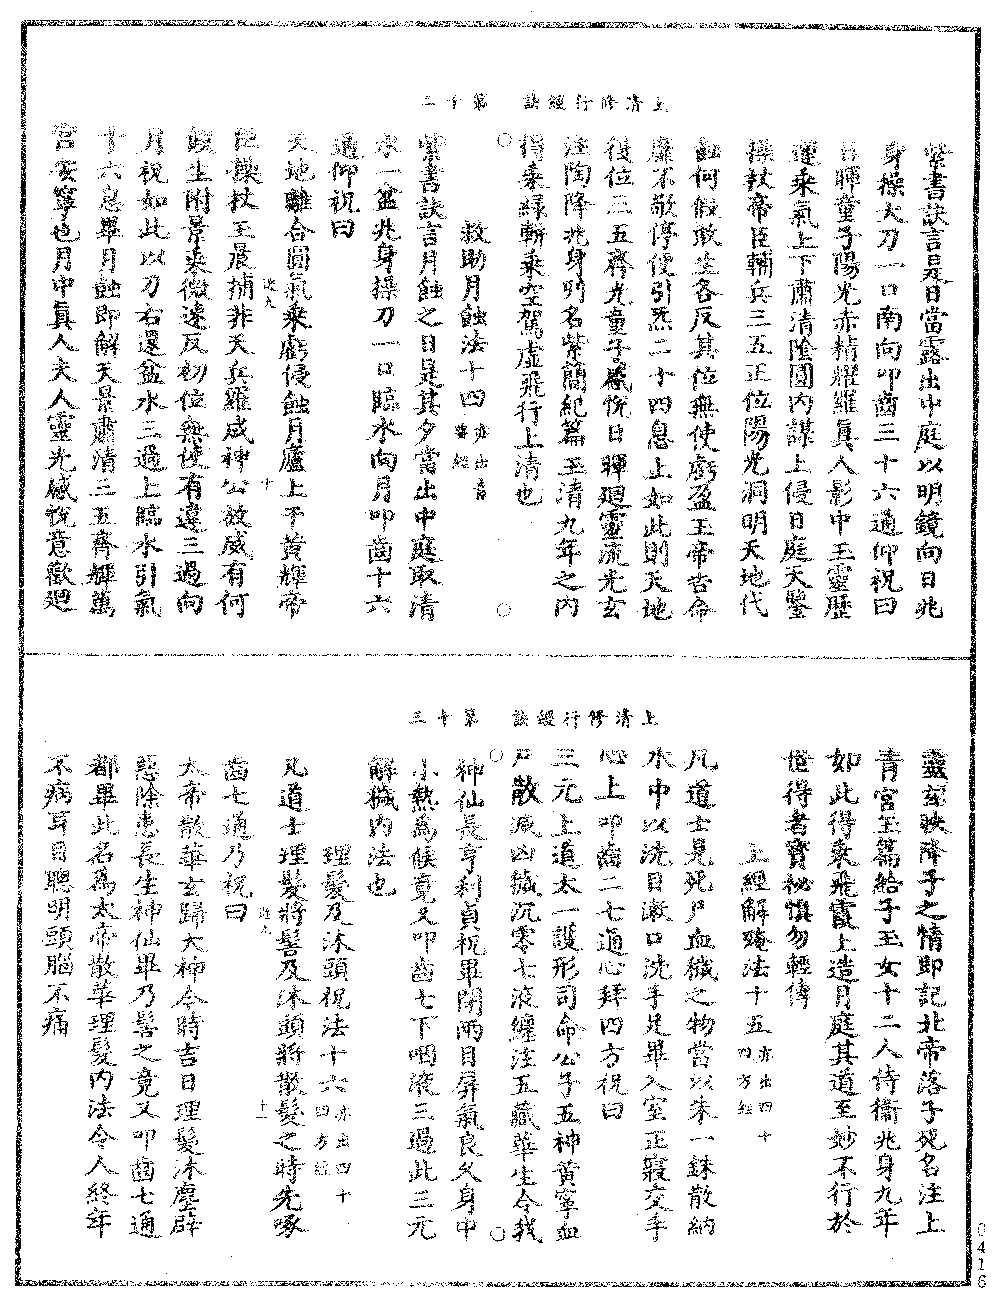 上清修行經訣 第十二
紫書訣言日是日當露出中庭以明鏡向日兆
身操大刀一口南向叩齒三十六通仰祝曰
日暉童子陽光赤精耀羅真人影中玉靈歷
運乘氣上下肅清陰圓內謀上侵日庭天鑒
操杖帝臣輔兵三五正位陽光洞明天地代
蝕何假敢生各反其位無使虧盈玉帝告命
靡不敢停便引炁二十四息止如此則天地
復位三五齊光童子感悅日暉迴靈流光玄
注陶降兆身明名紫簡紀篇玉清九年之內
得乘綠輧乘空駕虛飛行上清也
救助月蝕法十四 亦出青要經
紫書訣言月蝕之日是其夕當出中庭取清
水一盆兆身操刀一口臨水向月叩齒十六
通仰祝曰
天地離合圓氣乘虧侵蝕月廬上干黃輝帝
臣操杖玉晨捕非天兵羅威神公放威有何
蝕生附景來微速反初位無使有違三過向
月祝如此以刀右還盆水三過上臨水引氣
十六息畢月蝕即解天景肅清三五齊輝萬
宮安寧也月中真人夫人靈光感悅意歡迴
上清修行經訣 第十三
靈玄映降子之情即記北帝落子死名注上
青宮玉篇給子玉女十二人侍衛兆身九年
如此得乘飛霞上造月庭其道至妙不行於
世得者寶秘慎勿輕傳
上經解殗法十五 亦出四十四方經
凡道士見死尸血穢之物當以朱一銖散納
水中以洗目漱口洗手足畢入室正寢交手
心上叩齒二七通心拜四方祝曰
三元上道太一護形司命公子五神黃寧血
尸散滅凶穢沉零七液纏注五藏華生令我
神仙長亨利貞祝畢閉兩目屏氣良久身中
小熱為候竟又叩齒七下咽液三過此三元
解穢內法也
理髮及沐頭祝法十六 亦出四十四方經
凡道士理髮將髻及沐頭將散髮之時先啄
齒七通乃祝曰
太帝散華玄歸大神今時吉日理髮沐塵辟
惡除患長生神仙畢乃髻之竟又叩齒七通
都畢此名為太帝散華理髮內法令人終年
不病耳目聰明頭腦不痛
0416